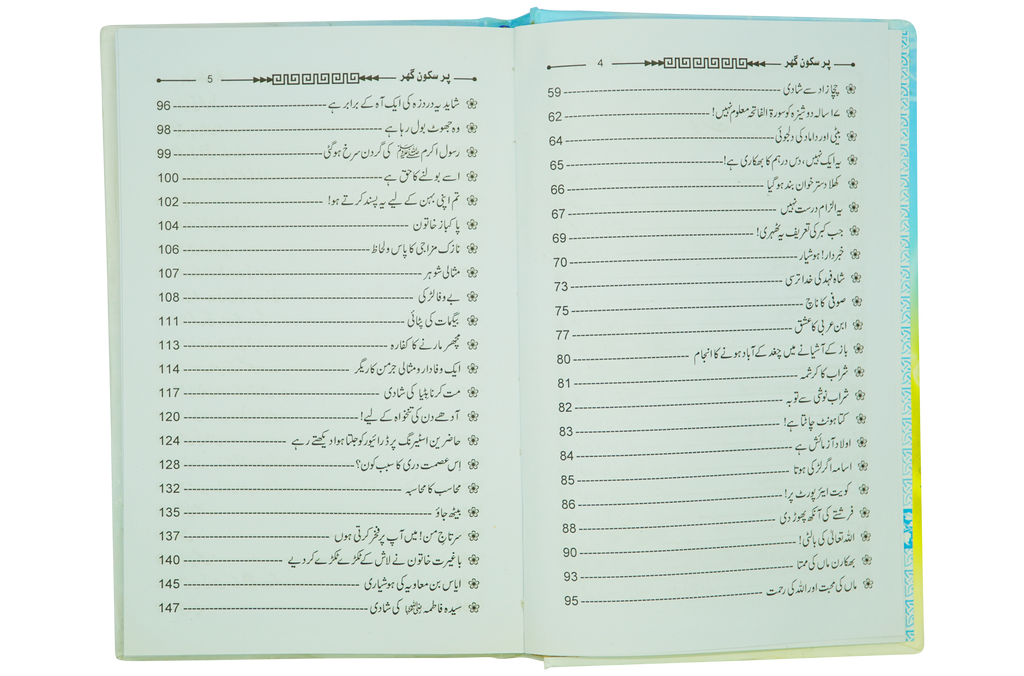 پر سکون گھر 4
چچا زاد سے شادی 59
۱۷ سالہ دوشیزہ کو سورۃ الفاتحہ معلوم نہیں! 62
بیٹی اور داماد کی دلجوئی 64
یہ ایک نہیں، دس درہم کا بھکاری ہے! 65
کھلا دستر خوان بند ہو گیا 66
یہ الزام درست نہیں 67
جب کبر کی تعریف یہ ٹھہری! 69
خبردار! ہوشیار 70
شاہ فہد کی خدا ترسی 73
صوفی کا ناچ 75
ابن عربی کا عشق 77
باز کے آشیانے میں چغد کے آباد ہونے کا انجام 80
شراب کا کرشمہ 81
شراب نوشی سے توبہ 82
کتا ہونٹ چاٹتا ہے! 83
اولاد آزمائش ہے 84
اسامہ اگر لڑکی ہوتا 85
کویت ایئر پورٹ پر! 86
فرشتے کی آنکھ پھوڑ دی 88
اللہ تعالیٰ کی بالٹی! 90
بھکارن ماں کی ممتا 93
ماں کی محبت اور اللہ کی رحمت 95
پر سکون گھر 5
شاید یہ دردزہ کی ایک آہ کے برابر ہے 96
وہ جھوٹ بول رہا ہے 98
رسول اکرم ﷺ کی گردن سرخ ہو گئی 99
اسے بولنے کا حق ہے 100
تم اپنی بہن کے لیے یہ پسند کرتے ہو! 102
پاکباز خاتون 104
نازک مزاجی کا پاس ولحاظ 106
مثالی شوہر 107
بے وفا لڑکی 108
بیگمات کی پٹائی 111
مچھر مارنے کا کفارہ 113
ایک وفادار ومثالی جرمن کاریگر 114
مت کرنا بٹیا کی شادی 117
آدھے دن کی تنخواہ کے لیے! 120
حاضرین اسٹیرنگ پر ڈرائیور کو جلتا ہوا دیکھتے رہے 124
اس عصمت دری کا سبب کون؟ 128
محاسب کا محاسبہ 132
بیٹھ جاؤ 135
سرتاج من! میں آپ پر فخر کرتی ہوں 137
باغیرت خاتون نے لاش کے ٹکڑے ٹکڑے کر دیے 140
ایاس بن معاویہ کی ہوشیاری 145
سیدہ فاطمہ رضی اللہ عنہا کی شادی 147